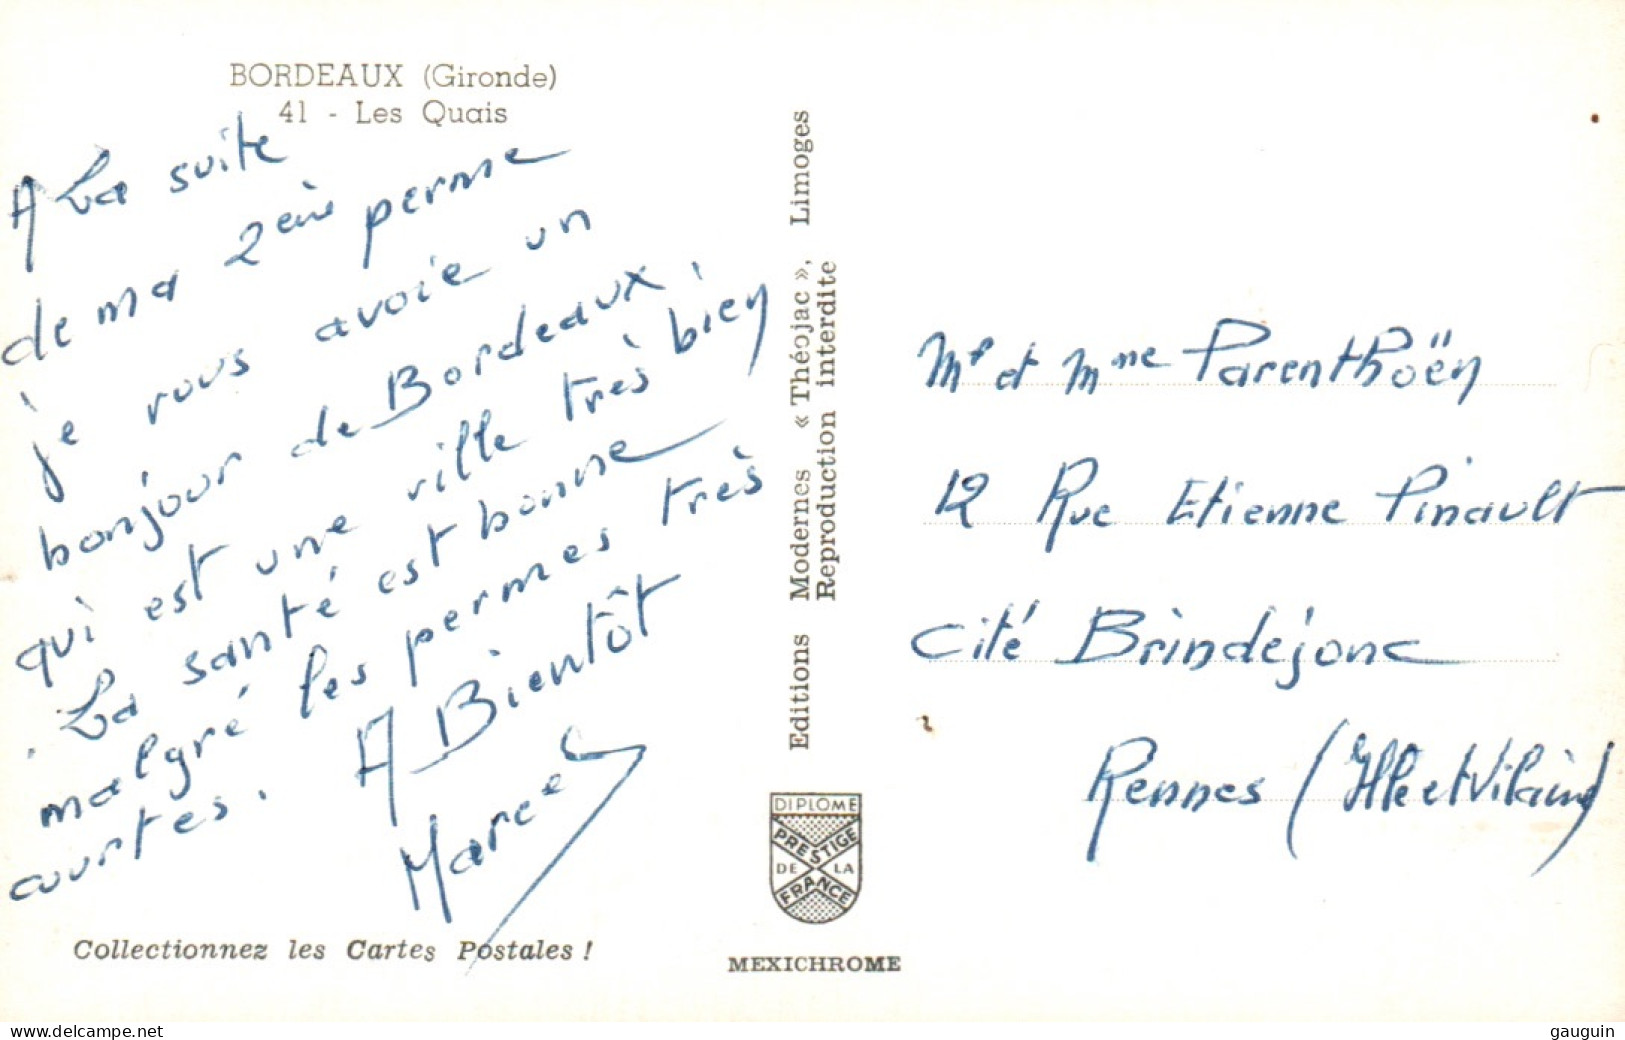 BORDEAUX (Gironde)
41 - Les Quais
A La suite
de ma 2ème perme
je vous avoie un
bonjour de Bordeaux,
qui est une ville très bien
. La santé est bonne
malgré les permes très
courtes.
A Bientôt
Marcel
Collectionnez les Cartes Postales !
Editions Modernes « Théojac », Limoges
Reproduction interdite
DIPLOME
PRESTIGE
DE LA
FRANCE
MEXICHROME
Mr et Mme Parenthoën
12 Rue Etienne Pinault
Cité Brindejonc
Rennes (Ille et Vilaine)
www.delcampe.net
gauguin